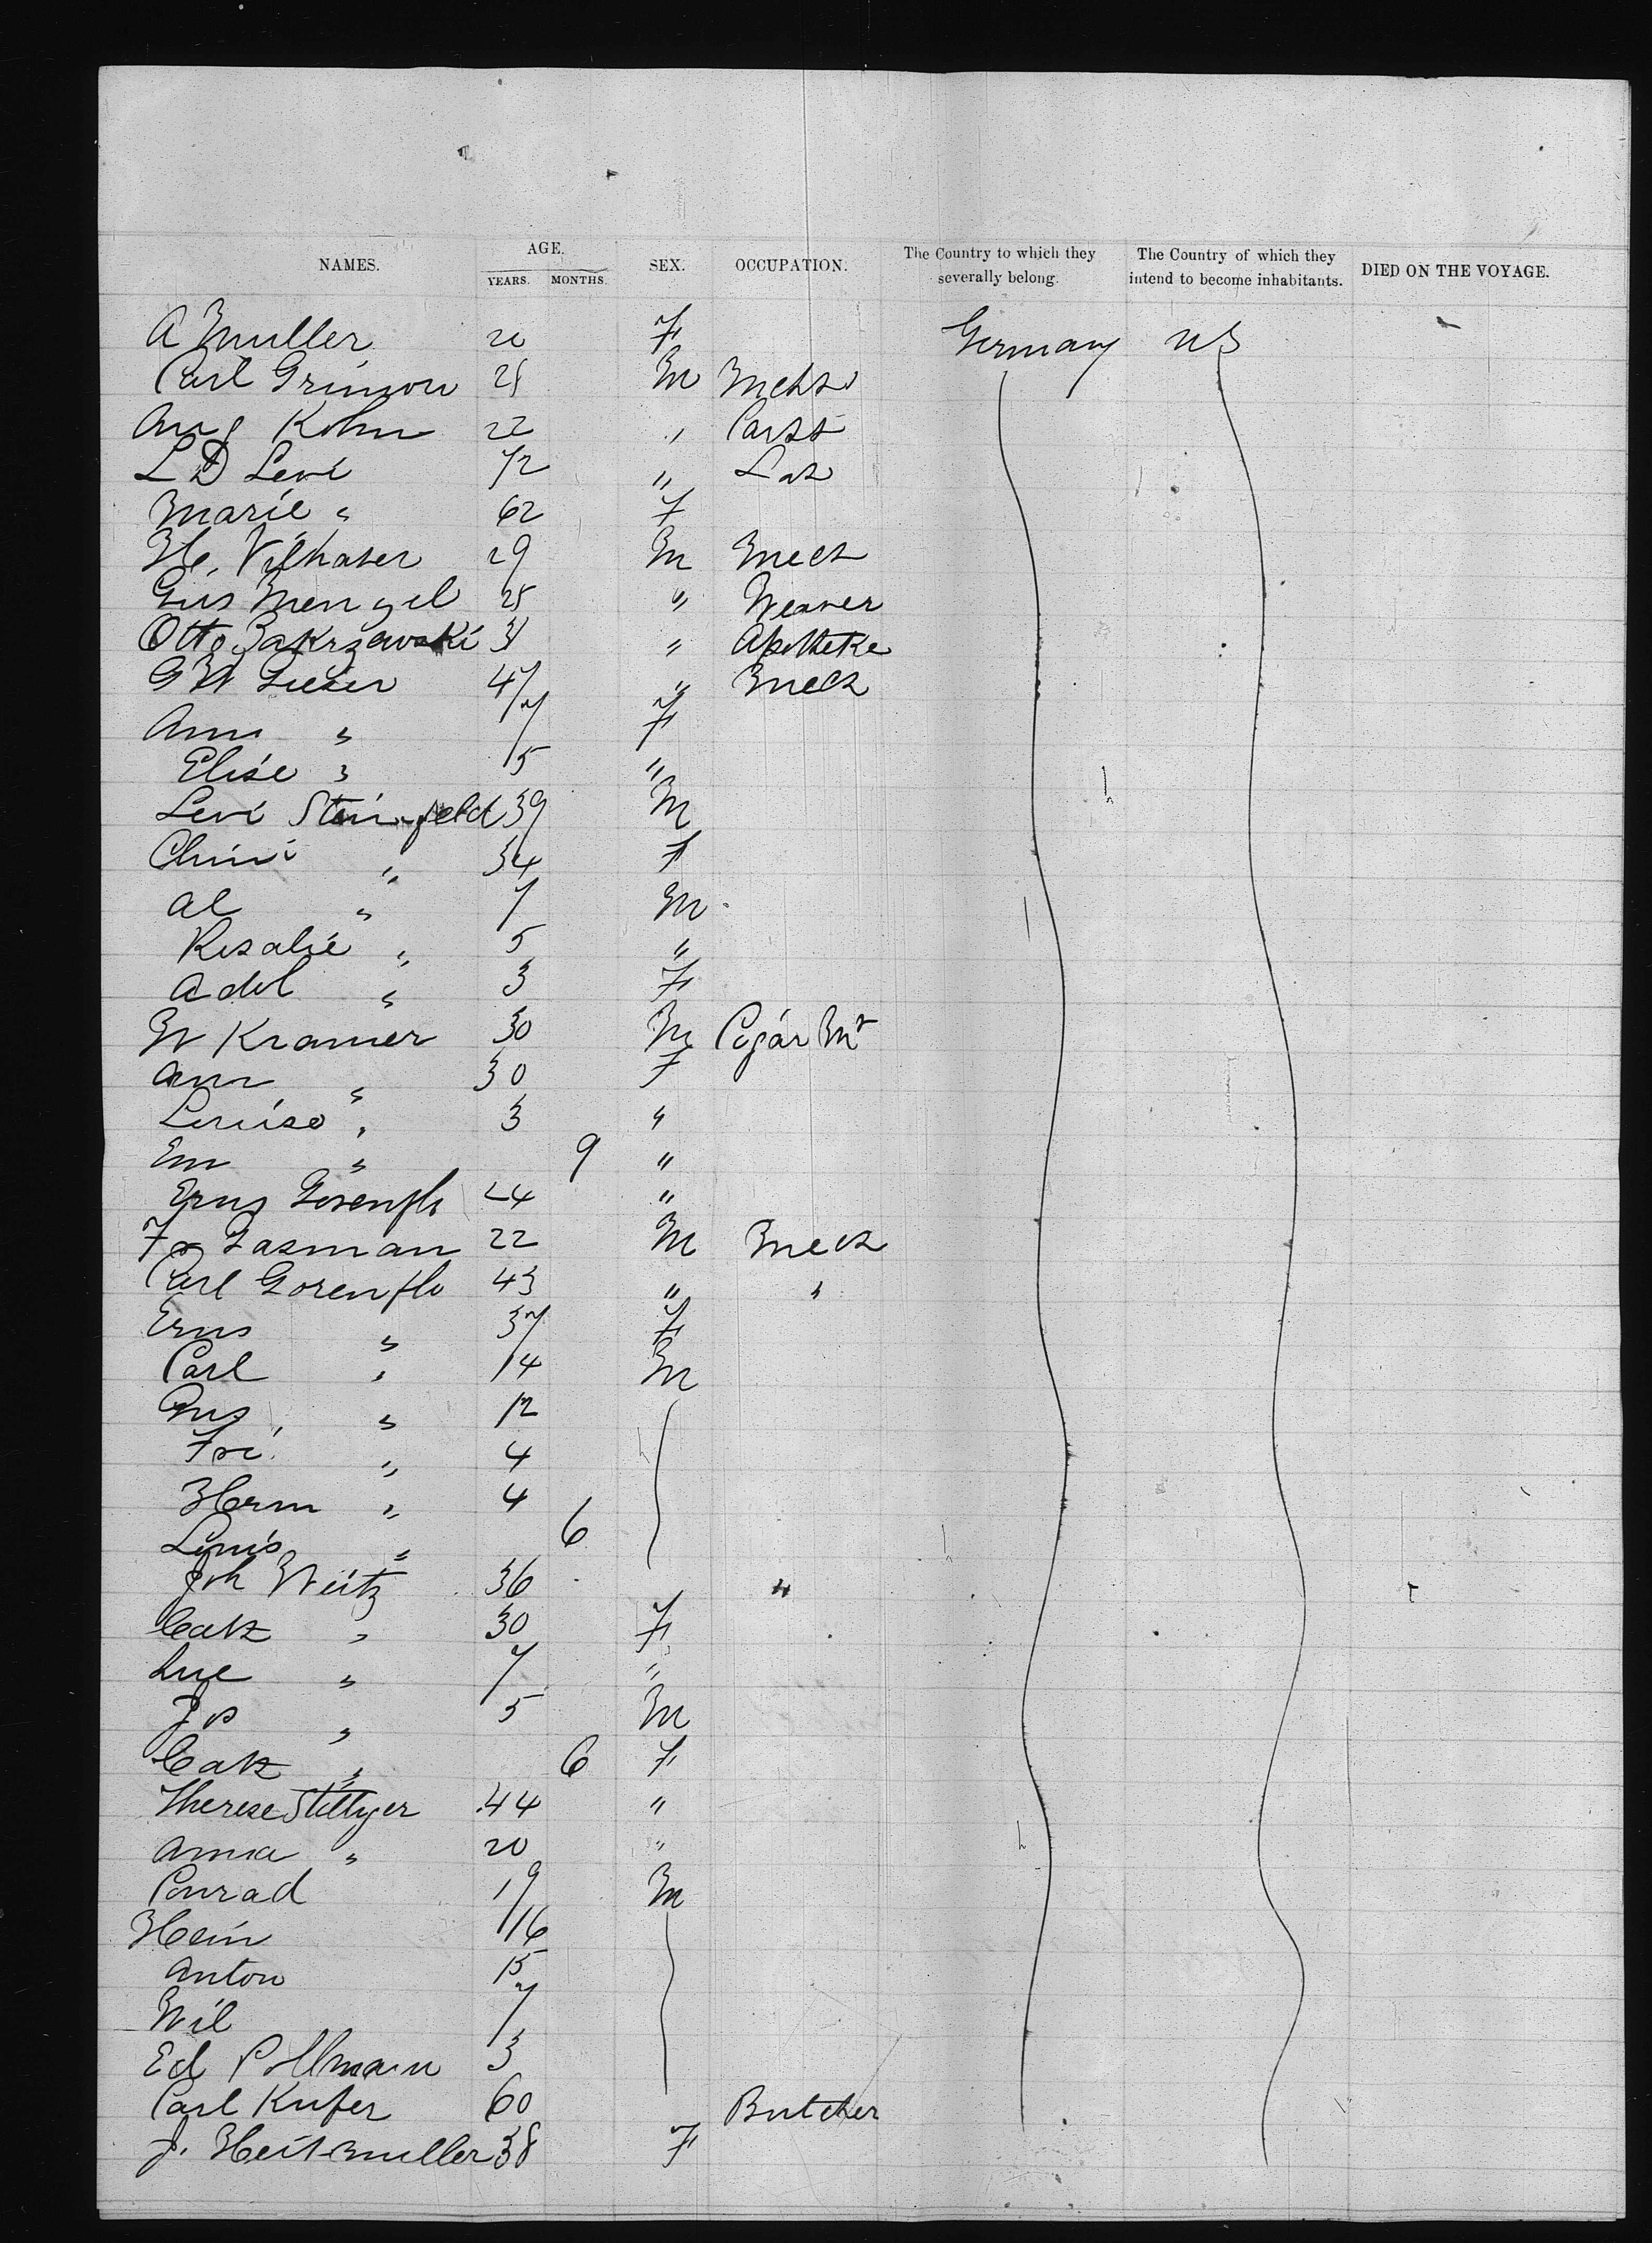 NAMES. AGE. YEARS. MONTHS. SEX. OCCUPATION. The Country to which they severally belong. The Country of which they intend to become inhabitants. DIED ON THE VOYAGE.
A Muller 20 F Germany US
Carl 28 M
Aug Kohn 22 "
L D Levi 72 " Lab
Marie " 62 F
29 M Mech
Gus Mengel 25 " Weaver
Otto Zakrzewski 31 " Apotheke
G W 47 " Mech
Ann " 7 F
Elise " 5 "
Levi Steinfeld 39 M
34 F
Al " 7 M
Rosalie " 5 "
Adol " 3 F
W Kramer 30 M Cigar Mr
Ann " 30 F
Louise " 3 "
Em " 9 "
Erns Gorenflo 24 "
Fr Gasman 22 M Mech
Carl Gorenflo 43 " "
Erns " 37 F
Carl " 14 M
Gus " 12
Fri " 4
Herm " 4
Louis " 6
Joh Weitz 36 "
Cath " 30 F
Lue " 7 "
Jos " 5 M
Cath " 6 F
Therese 44 "
Anna " 20 "
Conrad 19 M
Hein 16
Anton 15
Wil 7
Ed Pollmann 3
Carl Kufer 60 Butcher
J. Heitmuller 38 F